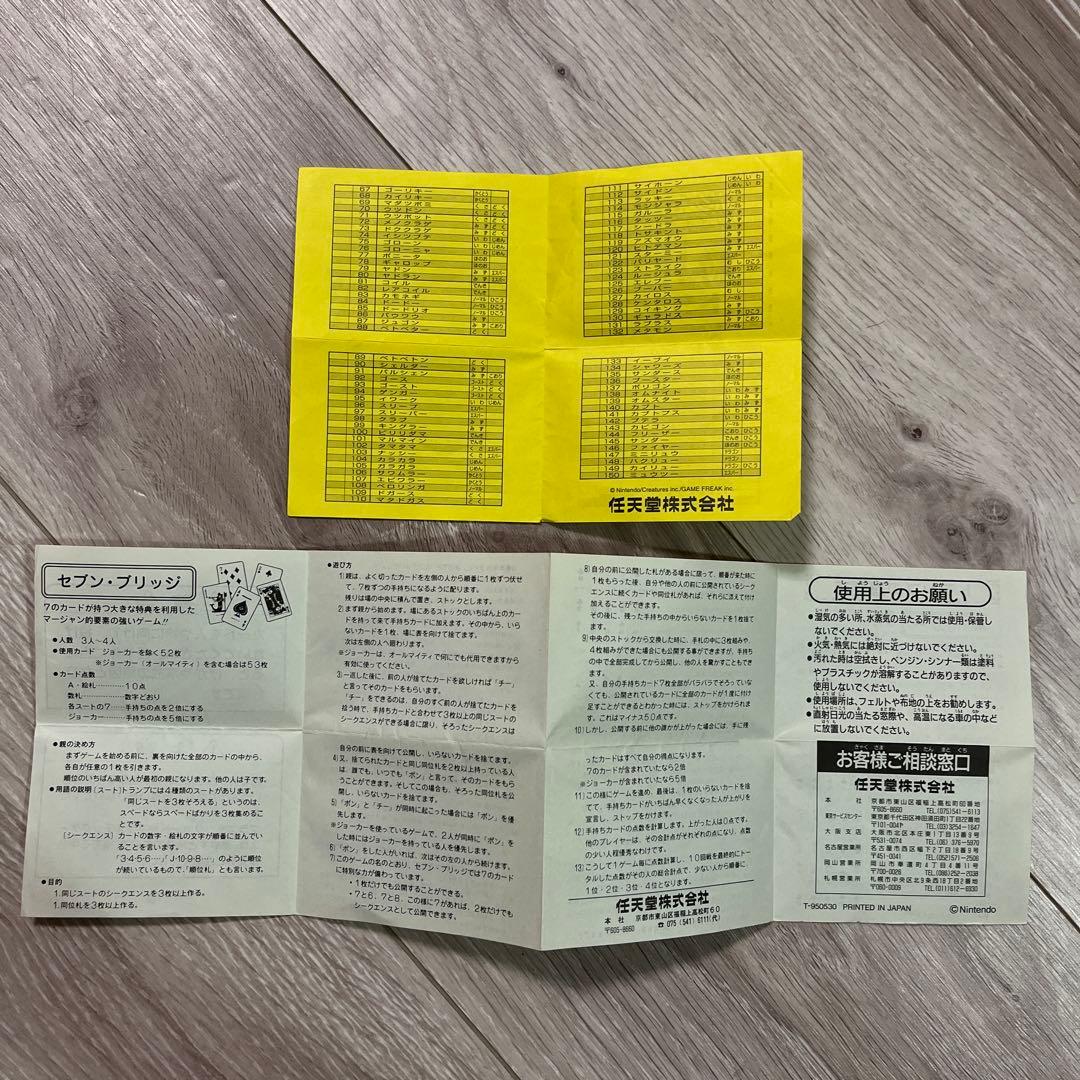 67 ゴーリキー かくとう
68 カイリキー かくとう
69 マダツボミ くさ どく
70 ウツドン くさ どく
71 ウツボット くさ どく
72 メノクラゲ みず どく
73 ドククラゲ みず どく
74 イシツブテ いわ じめん
75 ゴローン いわ じめん
76 ゴローニャ いわ じめん
77 ポニータ ほのお
78 ギャロップ ほのお
79 ヤドン みず エスパー
80 ヤドラン みず エスパー
81 コイル でんき
82 レアコイル でんき
83 カモネギ ノーマル ひこう
84 ドードー ノーマル ひこう
85 ドードリオ ノーマル ひこう
86 パウワウ みず
87 ジュゴン みず こおり
88 ベトベター どく
89 ベトベトン どく
90 シェルダー みず
91 パルシェン みず こおり
92 ゴース ゴースト どく
93 ゴースト ゴースト どく
94 ゲンガー ゴースト どく
95 イワーク いわ じめん
96 スリープ エスパー
97 スリーパー エスパー
98 クラブ みず
99 キングラー みず
100 ビリリダマ でんき
101 マルマイン でんき
102 タマタマ くさ エスパー
103 ナッシー くさ エスパー
104 カラカラ じめん
105 ガラガラ じめん
106 サワムラー かくとう
107 エビワラー かくとう
108 ベロリンガ ノーマル
109 ドガース どく
110 マタドガス どく
111 サイホーン じめん いわ
112 サイドン じめん いわ
113 ラッキー ノーマル
114 モンジャラ くさ
115 ガルーラ ノーマル
116 タッツー みず
117 シードラ みず
118 トサキント みず
119 アズマオウ みず
120 ヒトデマン みず
121 スターミー みず エスパー
122 バリヤード エスパー
123 ストライク むし ひこう
124 ルージュラ こおり エスパー
125 エレブー でんき
126 ブーバー ほのお
127 カイロス むし
128 ケンタロス ノーマル
129 コイキング みず
130 ギャラドス みず ひこう
131 ラプラス みず こおり
132 メタモン ノーマル
133 イーブイ ノーマル
134 シャワーズ みず
135 サンダース でんき
136 ブースター ほのお
137 ポリゴン ノーマル
138 オムナイト いわ みず
139 オムスター いわ みず
140 カブト いわ みず
141 カブトプス いわ みず
142 プテラ いわ ひこう
143 カビゴン ノーマル
144 フリーザー こおり ひこう
145 サンダー でんき ひこう
146 ファイヤー ほのお ひこう
147 ミニリュウ ドラゴン
148 ハクリュー ドラゴン
149 カイリュー ドラゴン ひこう
150 ミュウツー エスパー
© Nintendo/Creatures inc./GAME FREAK inc.
任天堂株式会社
セブン・ブリッジ
7のカードが持つ大きな特典を利用した
マージャン的要素の強いゲーム!!
●人数 3人〜4人
●使用カード ジョーカーを除く52枚
※ジョーカー（オールマイティ）を含む場合は53枚
●カード点数
A・絵札…………10点
数札……………数字どおり
各スートの7……手持ちの点を2倍にする
ジョーカー………手持ちの点を5倍にする
●親の決め方
まずゲームを始める前に、裏を向けた全部のカードの中から、
各自が任意の1枚を引きます。
順位のいちばん高い人が最初の親になります。他の人は子です。
●用語の説明〔スート〕トランプには4種類のスートがあります。
「同じスートを3枚そろえる」というのは、
スペードならスペードばかりを3枚集めるこ
とです。
〔シークエンス〕カードの数字・絵札の文字が順番に並んでい
ることを言います。
「3-4-5-6……」「J-10-9-8…」のように順位
が続いているもので、「順札」とも言います。
●目的
1.同じスートのシークエンスを3枚以上作る。
1.同位札を3枚以上作る。
●遊び方
1)親は、よく切ったカードを左側の人から順番に1枚ずつ伏せ
て、7枚ずつの手持ちになるように配ります。
残りは場の中央に積んで置き、ストックとします。
2)まず親から始めます。場にあるストックのいちばん上のカー
ドを持って来て手持ちカードに加えます。その中から、いら
ないカードを1枚、場に表を向けて捨てます。
次は左側の人へ廻わります。
※ジョーカーは、オールマイティで何にでも代用できますから
有効に使ってください。
3)一巡した後に、前の人が捨てたカードを欲しければ「チー」
と言ってそのカードをもらいます。
「チー」をできるのは、自分のすぐ前の人が捨てたカードを
拾う時で、手持ちカードと合わせて3枚以上の同じスートの
シークエンスができる場合に限り、そろったシークエンスは
自分の前に表を向けて公開し、いらないカードを捨てます。
4)又、捨てられたカードと同じ同位札を2枚以上持っている人
は、誰でも、いつでも「ポン」と言って、そのカードをもら
うことができます。そしてこの場合も、そろった同位札を公
開し、いらないカードを捨てます。
5)「ポン」と「チー」が同時に起こった場合には「ポン」を優
先します。
※ジョーカーを使っているゲームで、2人が同時に「ポン」を
した時にはジョーカーを持っている人を優先します。
6)「ポン」をした人がいれば、次はその左の人から続けます。
7)このゲームの名のとおり、セブン・ブリッジでは7のカード
に特別な力が備わっています。
・1枚だけでも公開することができる。
・7と6、7と8。この様に7があれば、2枚だけでも
シークエンスとして公開できます。
8)自分の前に公開した札がある場合に限って、順番が来た時に
1枚もらった後、自分や他の人の前に公開されているシーク
エンスに続くカードや同位札があれば、それらに添えて付け
加えることができます。
その後に、残った手持ちの中からいらないカードを1枚捨て
ます。
9)中央のストックから交換した時に、手札の中に3枚組みや、
4枚組みができた場合にも公開する事ができますが、手持ち
の中で全部完成してから公開し、他の人を驚かすこともでき
ます。
又、自分の手持ちカード7枚全部がバラバラでそろっていな
くても、公開されているカードに全部のカードが1度に付け
足すことができるとわかった時には、ストップをかけられま
す。これはマイナス50点です。
10)しかし、公開する前に他の誰かが上がった場合には、手に残
ったカードはすべて自分の得点になる。
7のカードが含まれていたなら2倍
※ジョーカーが含まれていたなら5倍
11)この様にゲームを進め、最後は、1枚のいらないカードを捨
てて、手持ちカードがいちばん早くなくなった人が上がりを
宣言し、ストップをかけます。
12)手持ちカードの点数を計算します。上がった人は0点です。
他のプレイヤーは、その合計点がそれぞれの点になり、点数
の少い人程優秀なわけです。
13)こうして1ゲーム毎に点数計算し、10回戦を最終的にトー
タルした点数がその人の総合計点で、少ない人から順番に
1位・2位・3位・4位となります。
任天堂株式会社
本社 京都市東山区福稲上高松町60
〒605-8660 ☎075(541)6111(代)
使用上のお願い
●湿気の多い所、水蒸気の当たる所では使用・保管し
ないでください。
●火気・熱気には絶対に近づけないでください。
●汚れた時は空拭きし、ベンジン・シンナー類は塗料
やプラスチックが溶解することがありますので、
使用しないでください。
●使用場所は、フェルトや布地の上をお勧めします。
●直射日光の当たる窓際や、高温になる車の中など
に放置しないでください。
お客様ご相談窓口
任天堂株式会社
本社 京都市東山区福稲上高松町60番地
〒605-8660 TEL.(075)541-6113
東京サービスセンター 東京都千代田区神田須田町1丁目22番地
〒101-004 TEL.(03)3254-1647
大阪支店 大阪市北区本庄東1丁目13番9号
〒531-0074 TEL.(06)376-5970
名古屋営業所 名古屋市西区幅下2丁目18番9号
〒451-0041 TEL.(052)571-2506
岡山営業所 岡山市奉還町4丁目4番11号
〒700-0026 TEL.(086)252-2038
札幌営業所 札幌市中央区北9条西18丁目2番地
〒060-0009 TEL.(011)612-6930
T-950530 PRINTED IN JAPAN ©Nintendo